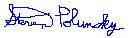 Steven Polunsky